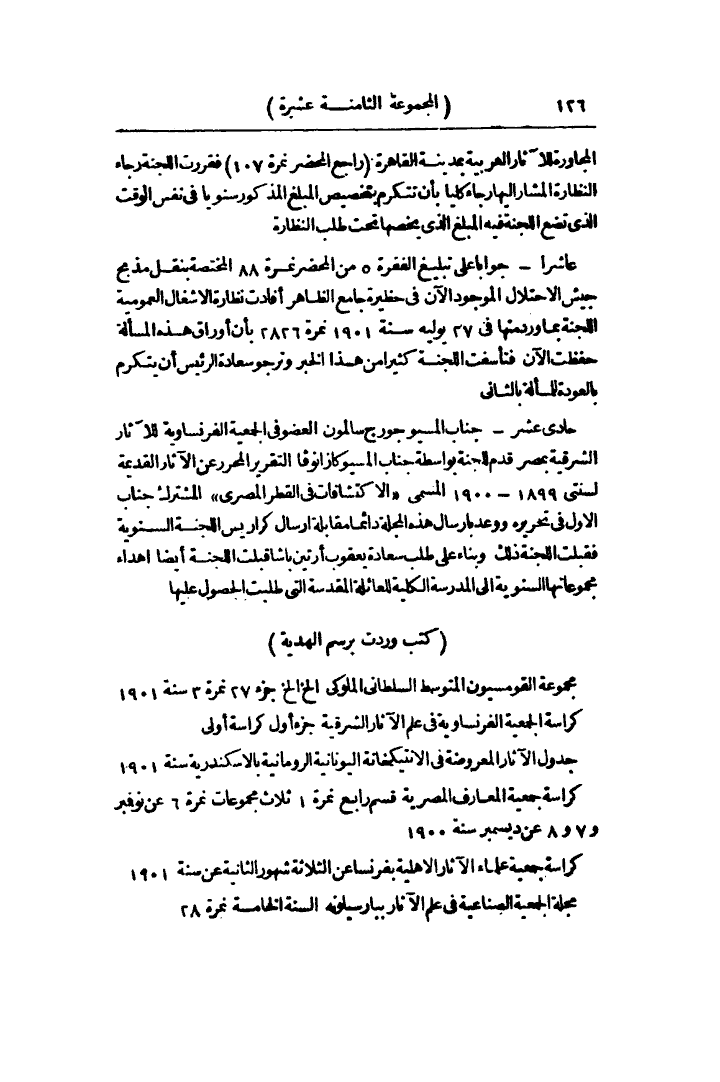 ١٢٦ (المجموعة الثامنة عشرة)
المجاورة للآثار العربية بمدينة القاهرة (راجع المحضر نمرة ١٠٧) فقررت اللجنة رجاء
النظارة المشار اليها رجاء كليا بأن تتكرم بتخصيص المبلغ المذكور سنويا فى نفس الوقت
الذى تضع اللجنة فيه المبلغ الذى يخصها تحت طلب النظارة
عاشرا - جوابا على تبليغ الفقرة ٥ من المحضر نمرة ٨٨ المختصة بنقل مذبح
جيش الاحتلال الموجود الآن فى حظيرة جامع الظاهر أفادت نظارة الاشغال العمومية
اللجنة بما ورد منها فى ٢٧ يوليه سنة ١٩٠١ نمرة ٢٨٢٦ بأن أوراق هذه المسألة
حفظت الآن فتأسفت اللجنة كثيرا من هذا الخبر وترجو سعادة الرئيس أن يتكرم
بالعودة للمسألة بالثانى
حادى عشر - جناب المسيو جورج سالمون العضو فى الجمعية الفرنساوية للآثار
الشرقية بمصر قدم للجنة بواسطة جناب المسيو كازانوفا التقرير المحرر عن الآثار القديمة
لسنتى ١٨٩٩ - ١٩٠٠ المسمى «الاكتشافات فى القطر المصرى» المشترك جناب
الاول فى تحريره ووعد بارسال هذه المجلة دائما مقابلة ارسال كراريس اللجنة السنوية
فقبلت اللجنة ذلك وبناء على طلب سعادة يعقوب أرتين باشا قبلت اللجنة أيضا اهداء
مجموعاتها السنوية الى المدرسة الكلية للعائلة المقدسة التى طلبت الحصول عليها
(كتب وردت برسم الهدية)
مجموعة القومسيون المتوسط السلطانى الملوكى الخ الخ جزء ٢٧ نمرة ٣ سنة ١٩٠١
كراسة الجمعية الفرنساوية فى علم الآثار الشرقية جزء أول كراسة أولى
جدول الآثار المعروضة فى الانتيكخانة اليونانية الرومانية بالاسكندرية سنة ١٩٠١
كراسة جمعية المعارف المصرية قسم رابع نمرة ١ ثلاث مجموعات نمرة ٦ عن نوفمبر
و٧ و٨ عن ديسمبر سنة ١٩٠٠
كراسة جمعية علماء الآثار الاهلية بفرنسا عن الثلاثة شهور الثانية عن سنة ١٩٠١
مجلة الجمعية الصناعية فى علم الآثار ببارسيلونه السنة الخامسة نمرة ٢٨